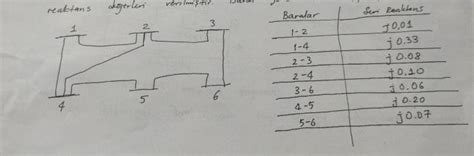 reaktans değerleri verilmiştir.
1 2 3
4 5 6
Baralar Seri Reaktans
1-2 j0,01
1-4 j0.33
2-3 j0.08
2-4 j0.10
3-6 j0.06
4-5 j0.20
5-6 j0.07